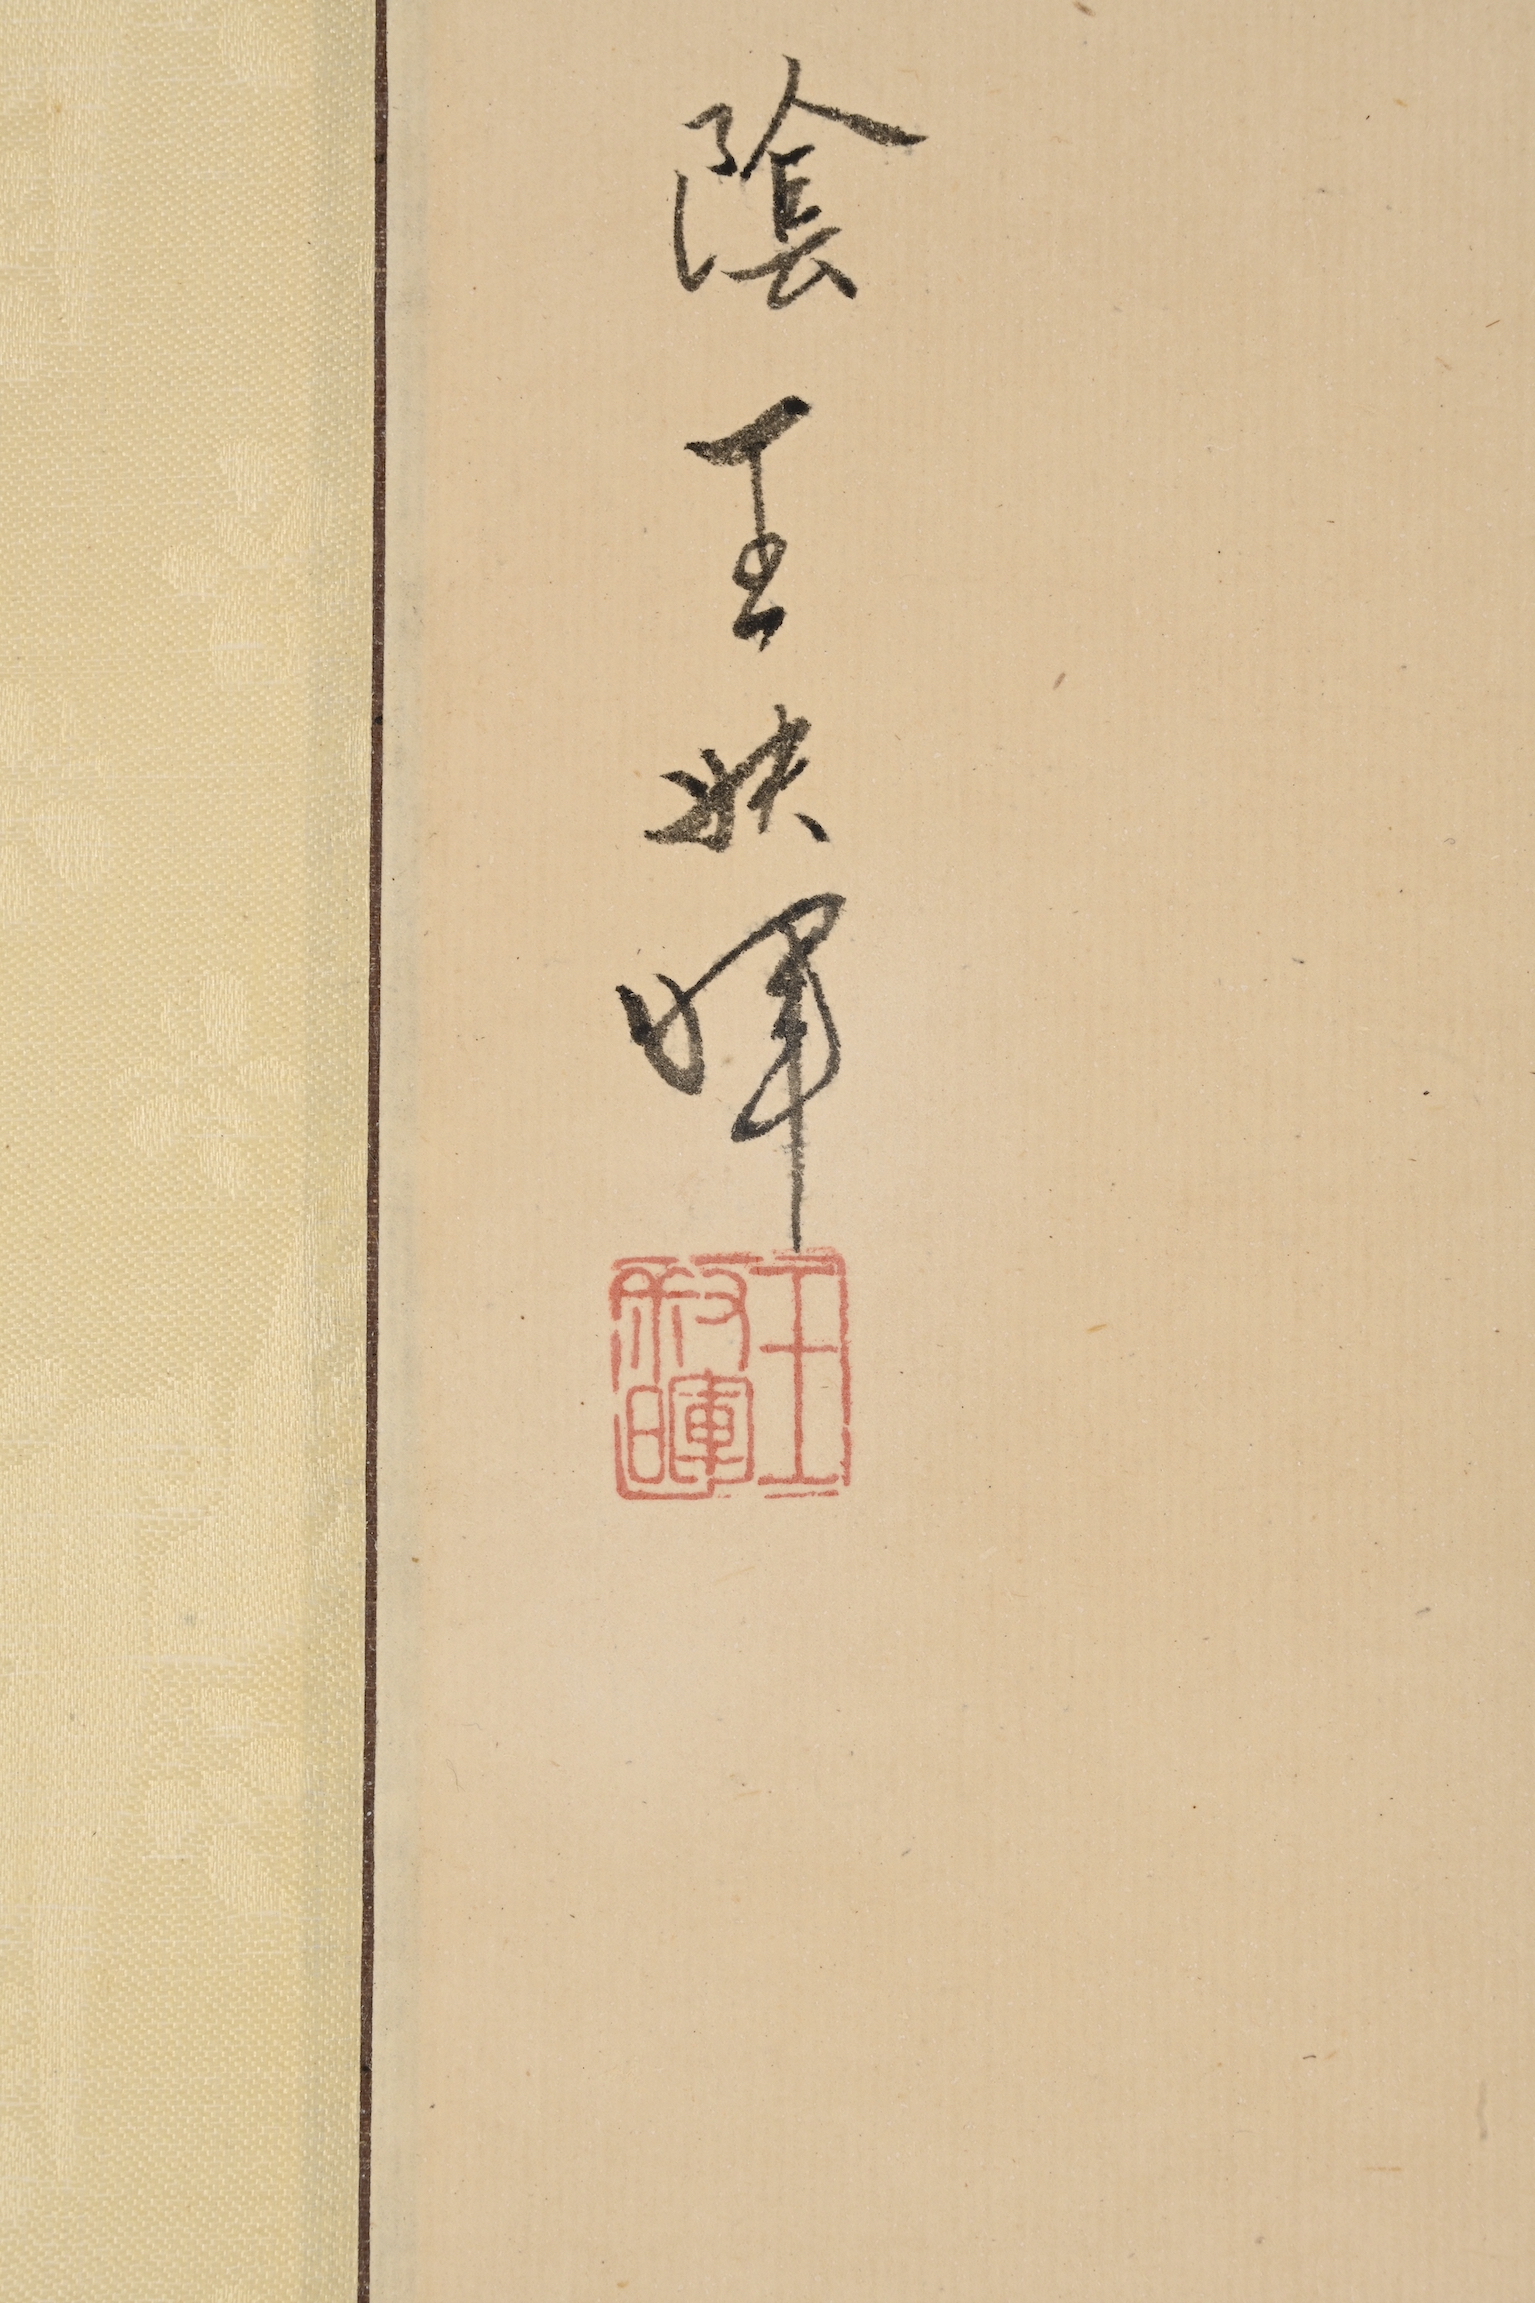 陰王叔暉
王叔暉